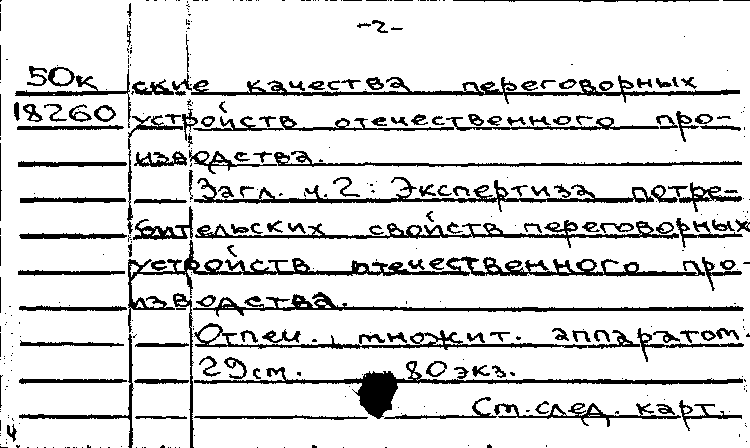 -2-
50к ские качества переговорных
18260 устройств отечественного про-
изводства.
Загл. ч.2: Экспертиза потре-
бительских свойств переговорных
устройств отечественного про-
изводства.
Отпеч. множит. аппаратом.
29см. 80 экз.
См. след. карт.
4